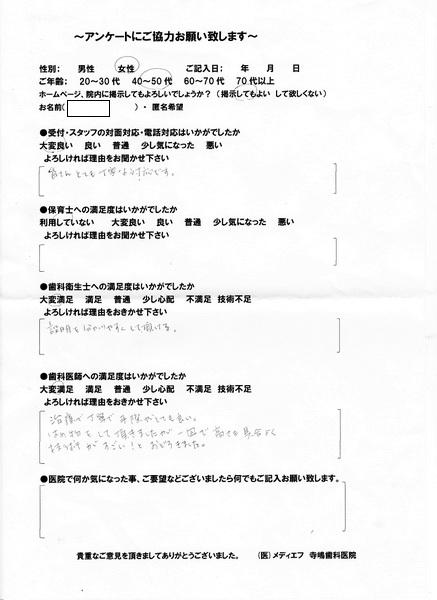 ～アンケートにご協力お願い致します～
性別： 男性 女性 ご記入日： 年 月 日
ご年齢： 20～30代 40～50代 60～70代 70代以上
ホームページ、院内に掲示してもよろしいでしょうか？（掲示してもよい して欲しくない）
お名前（ ）・ 匿名希望
●受付・スタッフの対面対応・電話対応はいかがでしたか
大変良い 良い 普通 少し気になった 悪い
よろしければ理由をお聞かせ下さい
皆さんとても丁寧な対応です。
●保育士への満足度はいかがでしたか
利用していない 大変良い 良い 普通 少し気になった 悪い
よろしければ理由をお聞かせ下さい
●歯科衛生士への満足度はいかがでしたか
大変満足 満足 普通 少し心配 不満足 技術不足
よろしければ理由をおきかせ下さい
説明をわかりやすくして頂ける。
●歯科医師への満足度はいかがでしたか
大変満足 満足 普通 少し心配 不満足 技術不足
よろしければ理由をおきかせ下さい
治療が丁寧で手際がとても良い。
はめ物をして頂きましたが一回で高さも具合よく
すごい！とおどろきました。
●医院で何か気になった事、ご要望などございましたら何でもご記入お願い致します。
貴重なご意見を頂きましてありがとうございました。 （医）メディエフ 寺嶋歯科医院